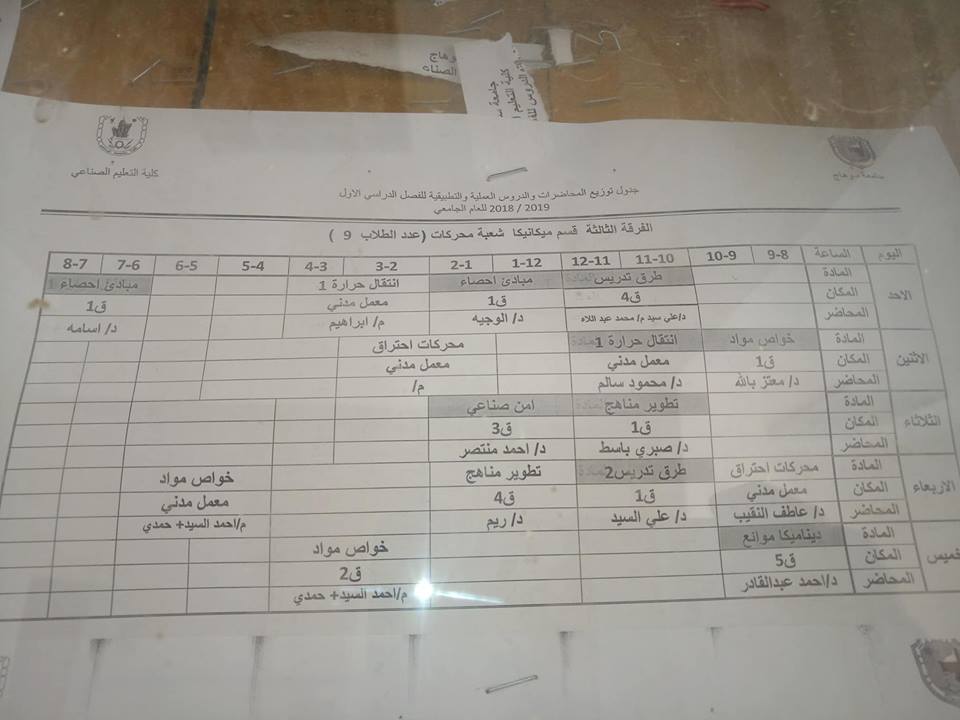 جامعة سوهاج
كلية التعليم الصناعي
جدول توزيع المحاضرات والدروس العملية والتطبيقية للفصل الدراسي الاول
للعام الجامعي 2018 / 2019
الفرقة الثالثة قسم ميكانيكا شعبة محركات (عدد الطلاب 9 )
اليوم الساعة 9-8 10-9 11-10 12-11 1-12 2-1 3-2 4-3 5-4 6-5 7-6 8-7
الاحد المادة طرق تدريس مبادئ احصاء انتقال حرارة 1 مبادئ احصاء 1
المكان ق4 ق1 معمل مدني ق1
المحاضر د/علي سيد م/ محمد عبد اللاه د/ الوجيه م/ ابراهيم د/ اسامه
الاثنين المادة خواص مواد انتقال حرارة 1 محركات احتراق
المكان ق1 معمل مدني معمل مدني
المحاضر د/ معتز بالله د/ محمود سالم م/
الثلاثاء المادة تطوير مناهج امن صناعي
المكان ق1 ق3
المحاضر د/ صبري باسط د/ احمد منتصر
الاربعاء المادة محركات احتراق طرق تدريس2 تطوير مناهج خواص مواد
المكان معمل مدني ق1 ق4 معمل مدني
المحاضر د/ عاطف النقيب د/ علي السيد د/ ريم م/احمد السيد+ حمدي
خميس المادة ديناميكا موائع خواص مواد
المكان ق5 ق2
المحاضر د/احمد عبدالقادر م/احمد السيد+ حمدي